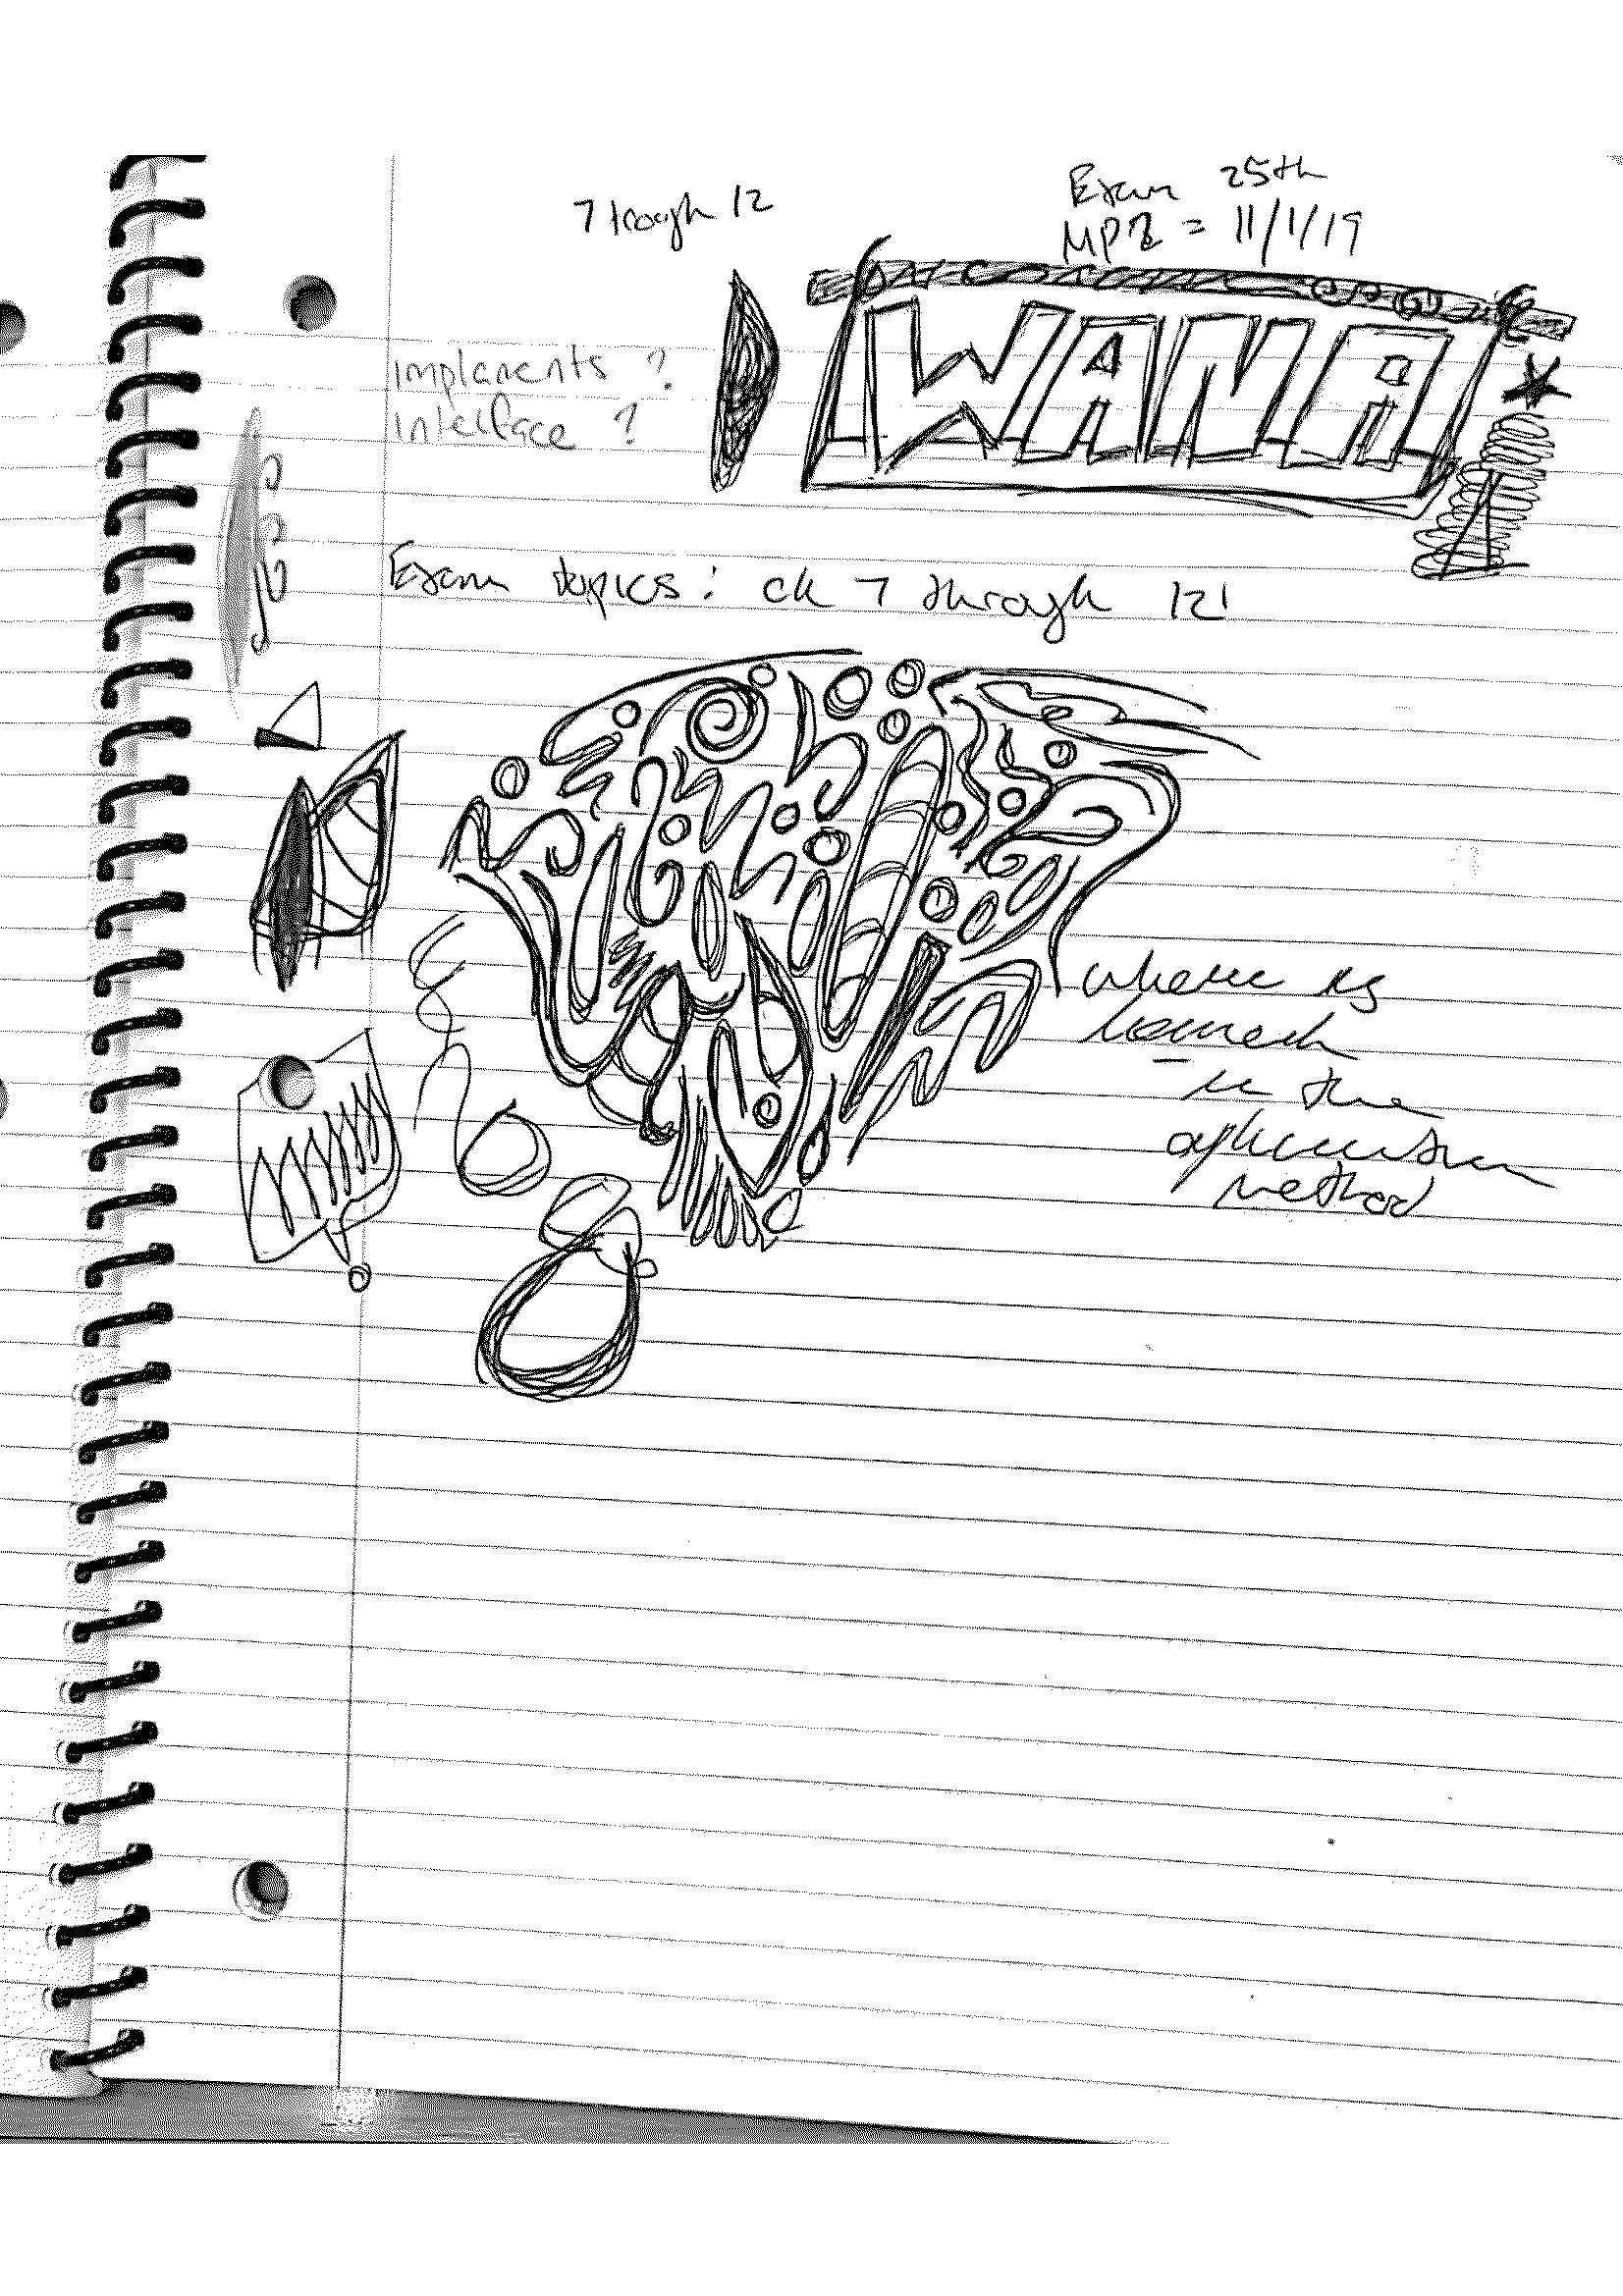 7 trough 12
Exam 25th
MP2 = 11/1/19
WANA
implements ?
interface ?
Exam topics: ch 7 through 12!
where is
in the
method